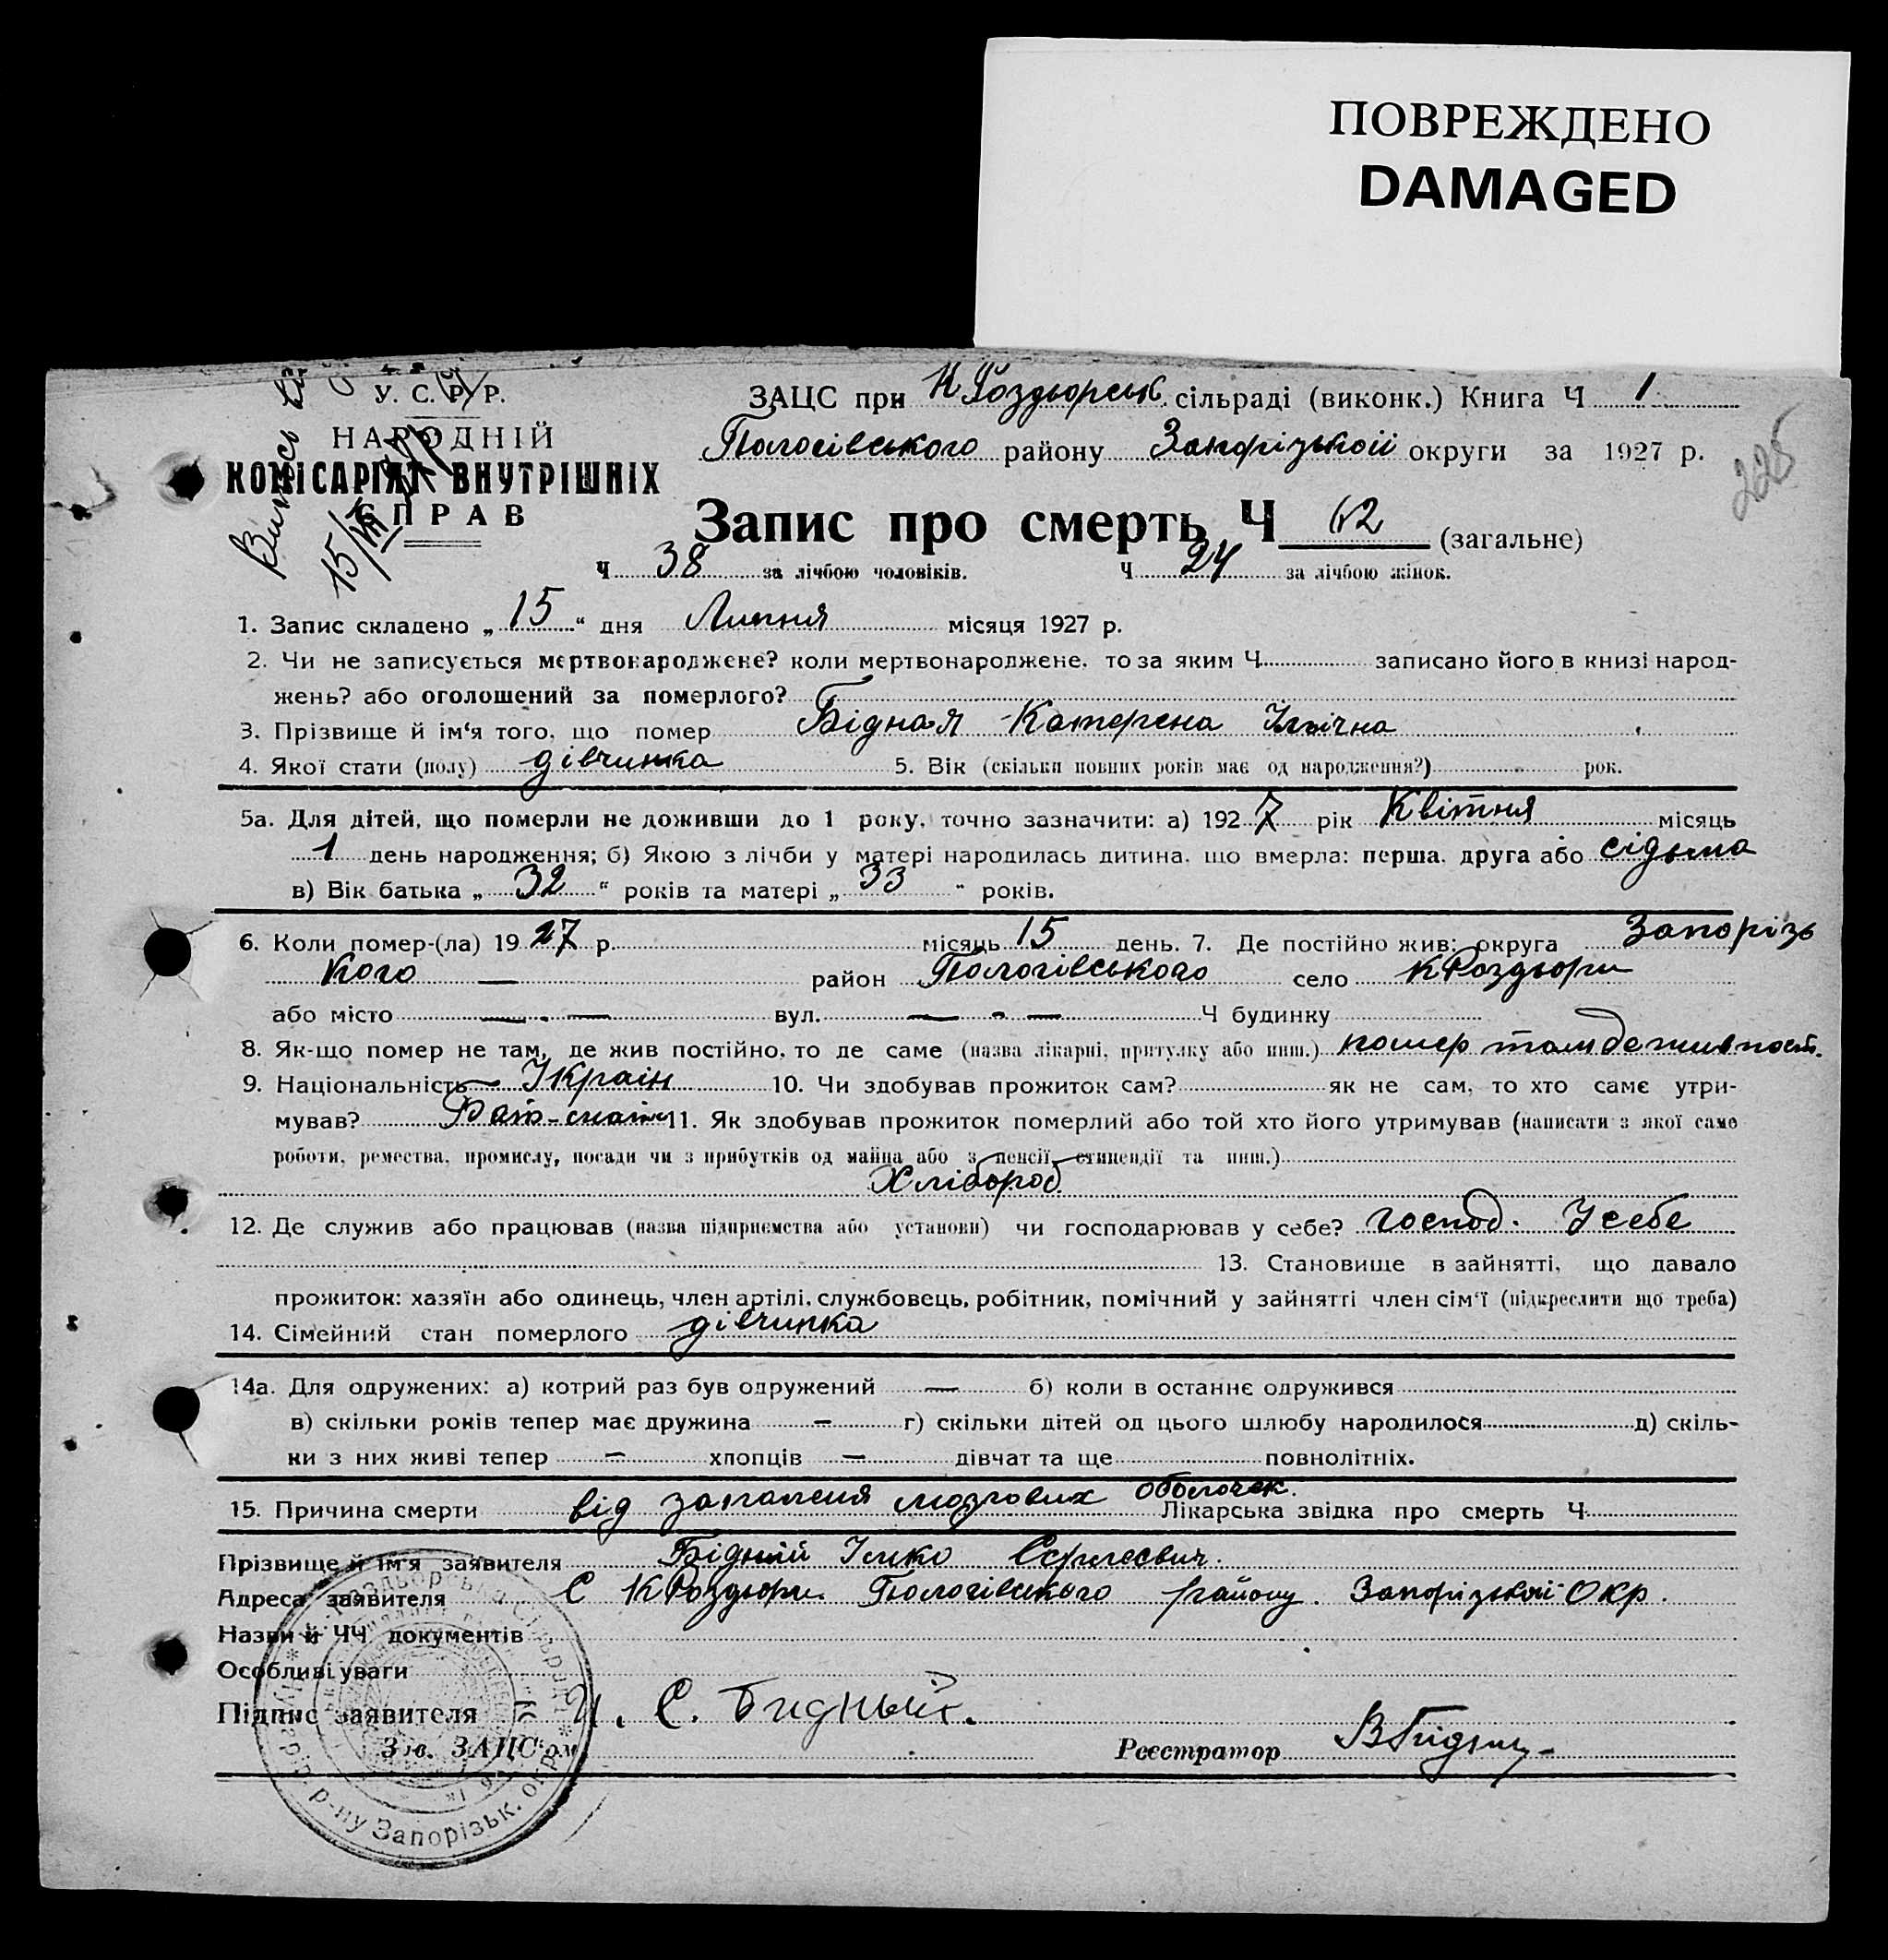 ПОВРЕЖДЕНО
DAMAGED
У. С. Р. Р.
НАРОДНІЙ
КОМІСАРІЯТ ВНУТРІШНІХ
СПРАВ
15/VII
ЗАЦС при К Роздорськ. сільраді (виконк.) Книга Ч 1
Пологівського району Запорізької округи за 1927 р.
225
Запис про смерть Ч 62 (загальне)
Ч 38 за лічбою чоловіків. Ч 24 за лічбою жінок.
1. Запис складено „ 15 “ дня Липня місяця 1927 р.
2. Чи не записується мертвонароджене? коли мертвонароджене, то за яким Ч записано його в книзі народ-
жень? або оголошений за померлого?
3. Прізвище й ім‘я того, що помер Бідная Катерена Іллічна
4. Якої стати (полу) дівчинка 5. Вік (скільки повних років має од народження?) рок.
5а. Для дітей, що померли не доживши до 1 року, точно зазначити: а) 1927 рік Квітня місяць
1 день народження; б) Якою з лічби у матері народилась дитина, що вмерла: перша, друга або сідьма
в) Вік батька „ 32 “ років та матері „ 33 “ років.
6. Коли помер-(ла) 1927 р. місяць 15 день. 7. Де постійно жив: округа Запорізь
кого — район Пологівського село К Роздори
або місто — . — вул. — - — Ч будинку
8. Як-що помер не там, де жив постійно, то де саме (назва лікарні, притулку або инш.) помер там де жив пост.
9. Національність Україн 10. Чи здобував прожиток сам? як не сам, то хто саме утри-
мував? Бать-мати 11. Як здобував прожиток померлий або той хто його утримував (написати з якої саме
роботи, ремества, промислу, посади чи з прибутків од майна або з пенсії, стипендії та инш.)
Хлібороб
12. Де служив або працював (назва підприємства або установи) чи господарював у себе? господ. У себе
13. Становище в зайнятті, що давало
прожиток: хазяїн або одинець, член артілі, службовець, робітник, помічний у зайнятті член сім‘ї (підкреслити що треба)
14. Сімейний стан померлого дівчинка
14а. Для одружених: а) котрий раз був одружений — б) коли в останнє одружився
в) скільки років тепер має дружина — г) скільки дітей од цього шлюбу народилося д) скіль-
ки з них живі тепер — хлопців — дівчат та ще повнолітніх.
15. Причина смерти від запаленя мозгових оболочек. Лікарська звідка про смерть Ч
Прізвище й ім‘я заявителя Бідний Ілько Сергеевич.
Адреса заявителя С К Роздори Пологівського району. Запорізької Окр.
Назви й ЧЧ документів
Особливі уваги
Підпис заявителя И. С. Бидный.
Зав. ЗАЦС‘ом
Реєстратор
р-ну Запорізьк. окр.